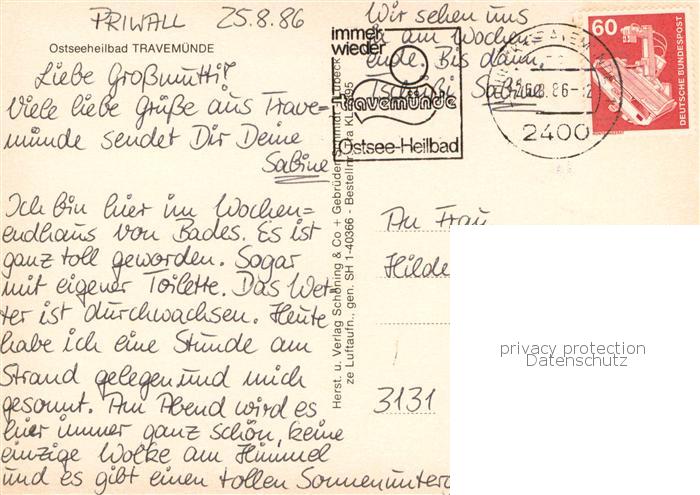 PRIWALL 25.8.86
Ostseeheilbad TRAVEMÜNDE
Liebe Großmutti!
Viele liebe Grüße aus Trave=
münde sendet Dir Deine
Sabine
Ich bin hier im Wochen=
endhaus von Bades. Es ist
ganz toll geworden. Sogar
mit eigener Toilette. Das Wet=
ter ist durchwachsen. Heute
habe ich eine Stunde am
Strand gelegen und mich
gesonnt. Am Abend wird es
hier immer ganz schön, keine
einzige Wolke am Himmel
und es gibt einen tollen Sonnenunter
Wir sehen uns
am Wochen
ende. Bis dann,
Tschüßi Sabine
Herst. u. Verlag Schöning & Co + Gebrüder Schmidt, Lübeck
ze Luftaufn., gen. SH 1-40366 - Bestellnr.
immer
wieder
travemünde
Ostsee-Heilbad
86-
2400
60
DEUTSCHE BUNDESPOST
An Frau
Hilde
3131
privacy protection
Datenschutz